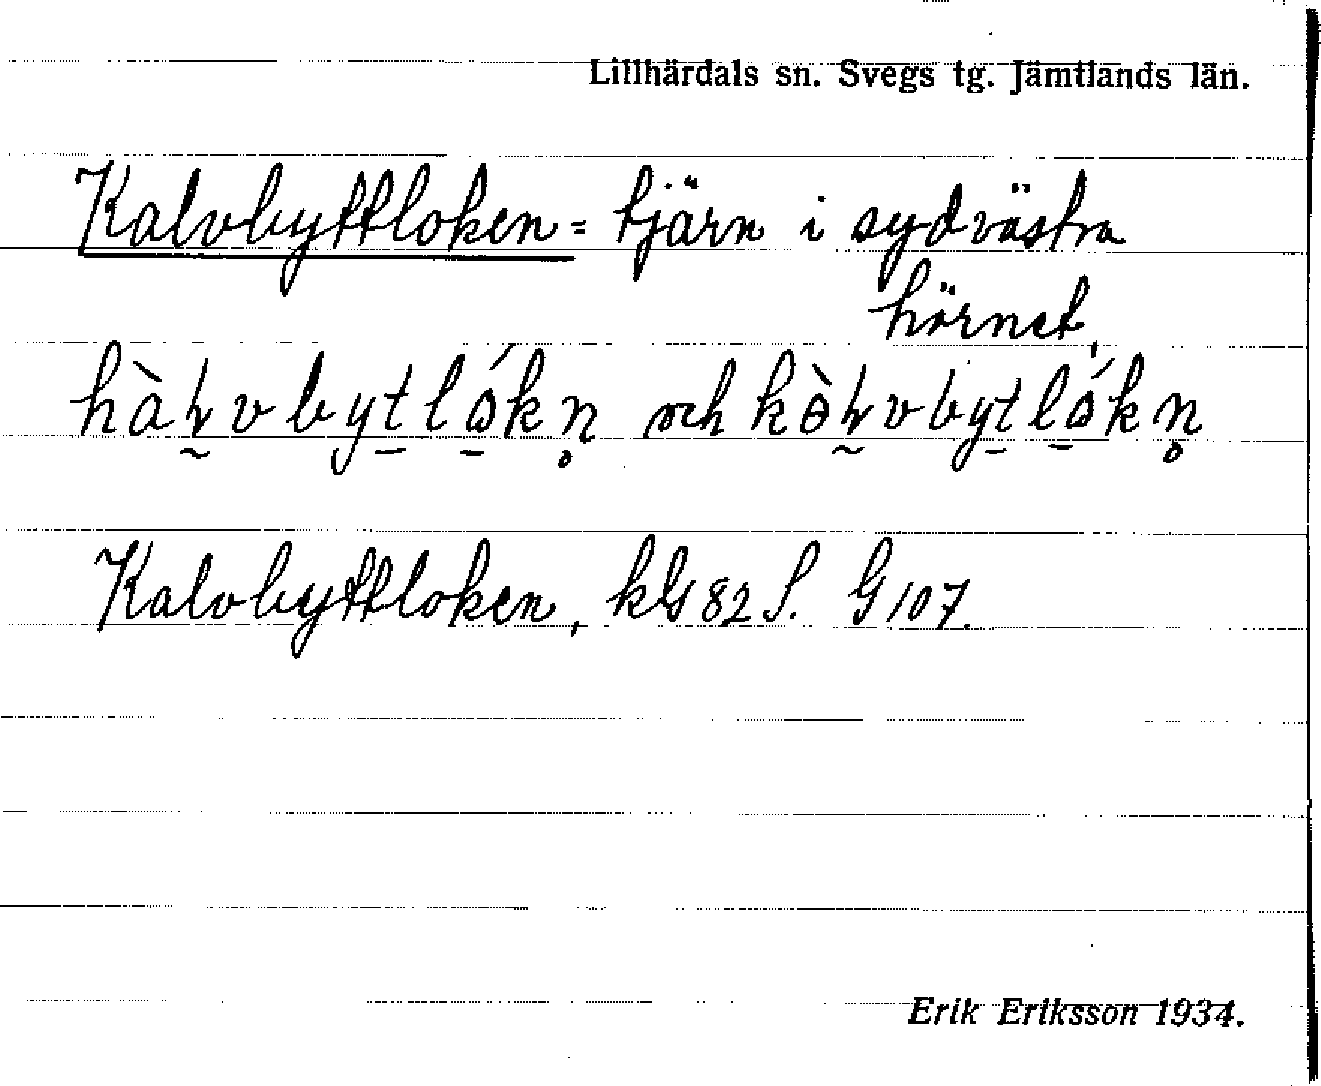 Lillhärdals sn. Svegs tg. Jämtlands län.
Kalvbyttloken = tjärn i sydvästra
hörnet,
och
Kalvbyttloken, kG 82 S. G 107.
Erik Eriksson 1934.